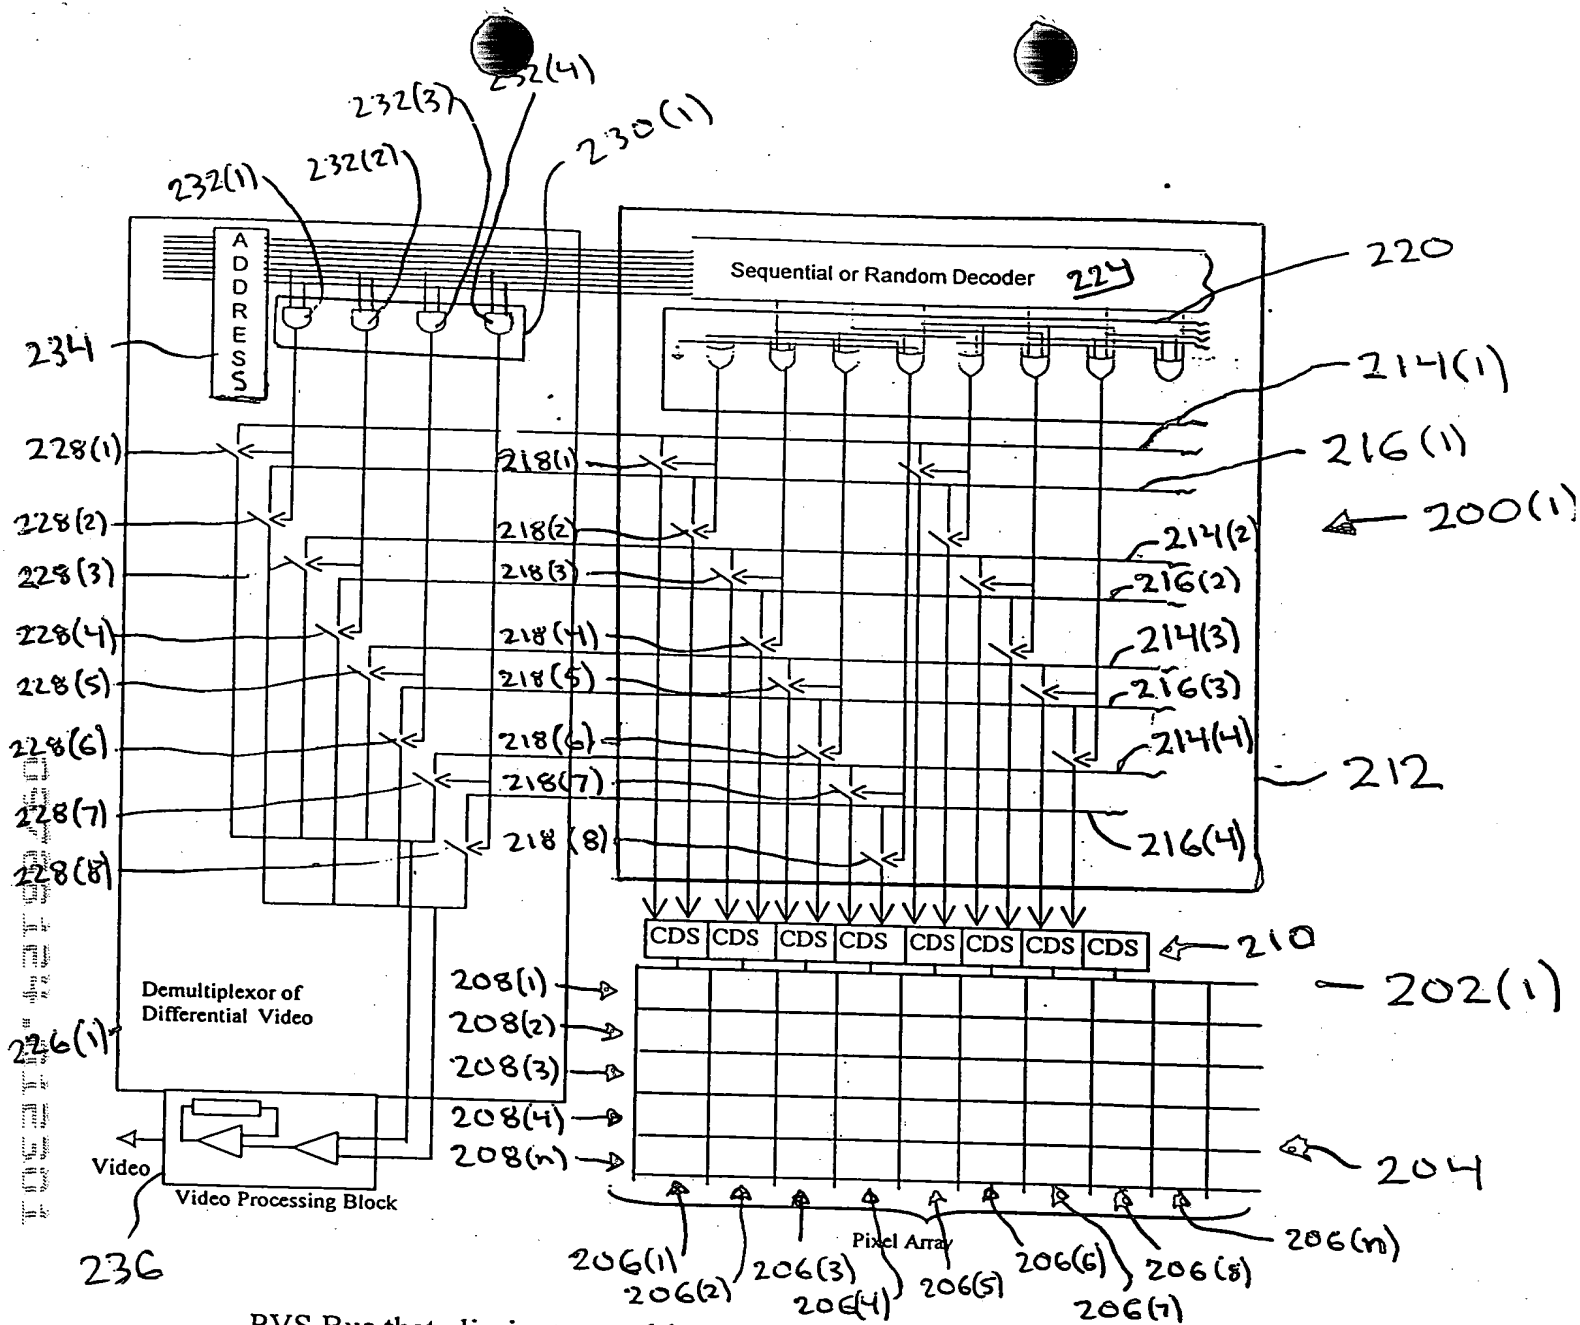 232(4)
232(3)
230(1)
232(2)
232(1)
ADDRESS
Sequential or Random Decoder 224
220
234
214(1)
228(1)
218(1)
216(1)
200(1)
228(2)
218(2)
214(2)
228(3)
218(3)
216(2)
228(4)
218(4)
214(3)
228(5)
218(5)
216(3)
228(6)
218(6)
214(4)
212
228(7)
218(7)
228(8)
218(8)
216(4)
CDS CDS CDS CDS CDS CDS CDS CDS
210
208(1)
202(1)
Demultiplexor of
Differential Video
208(2)
226(1)
208(3)
208(4)
208(n)
204
Video
Video Processing Block
236
Pixel Array
206(1)
206(2)
206(3)
206(4)
206(5)
206(6)
206(7)
206(8)
206(n)